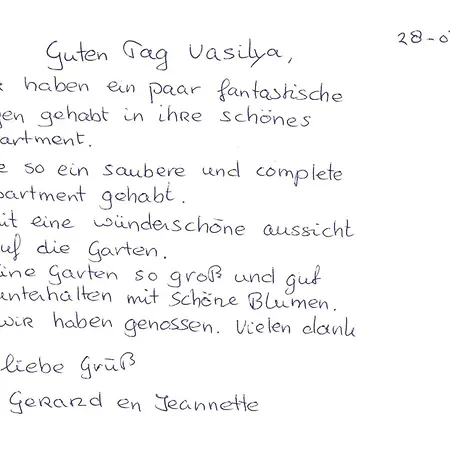 28-0
Guten Tag Vasilya,
haben ein paar fantastische
gen gehabt in ihre schönes
artment.
e so ein saubere und complete
partment gehabt.
it eine wünderschöne aussicht
uf die Garten.
ine Garten so groß und gut
unterhalten mit schöne Blumen.
wir haben genossen. Vielen dank
liebe Grüß
Gerard en Jeannette